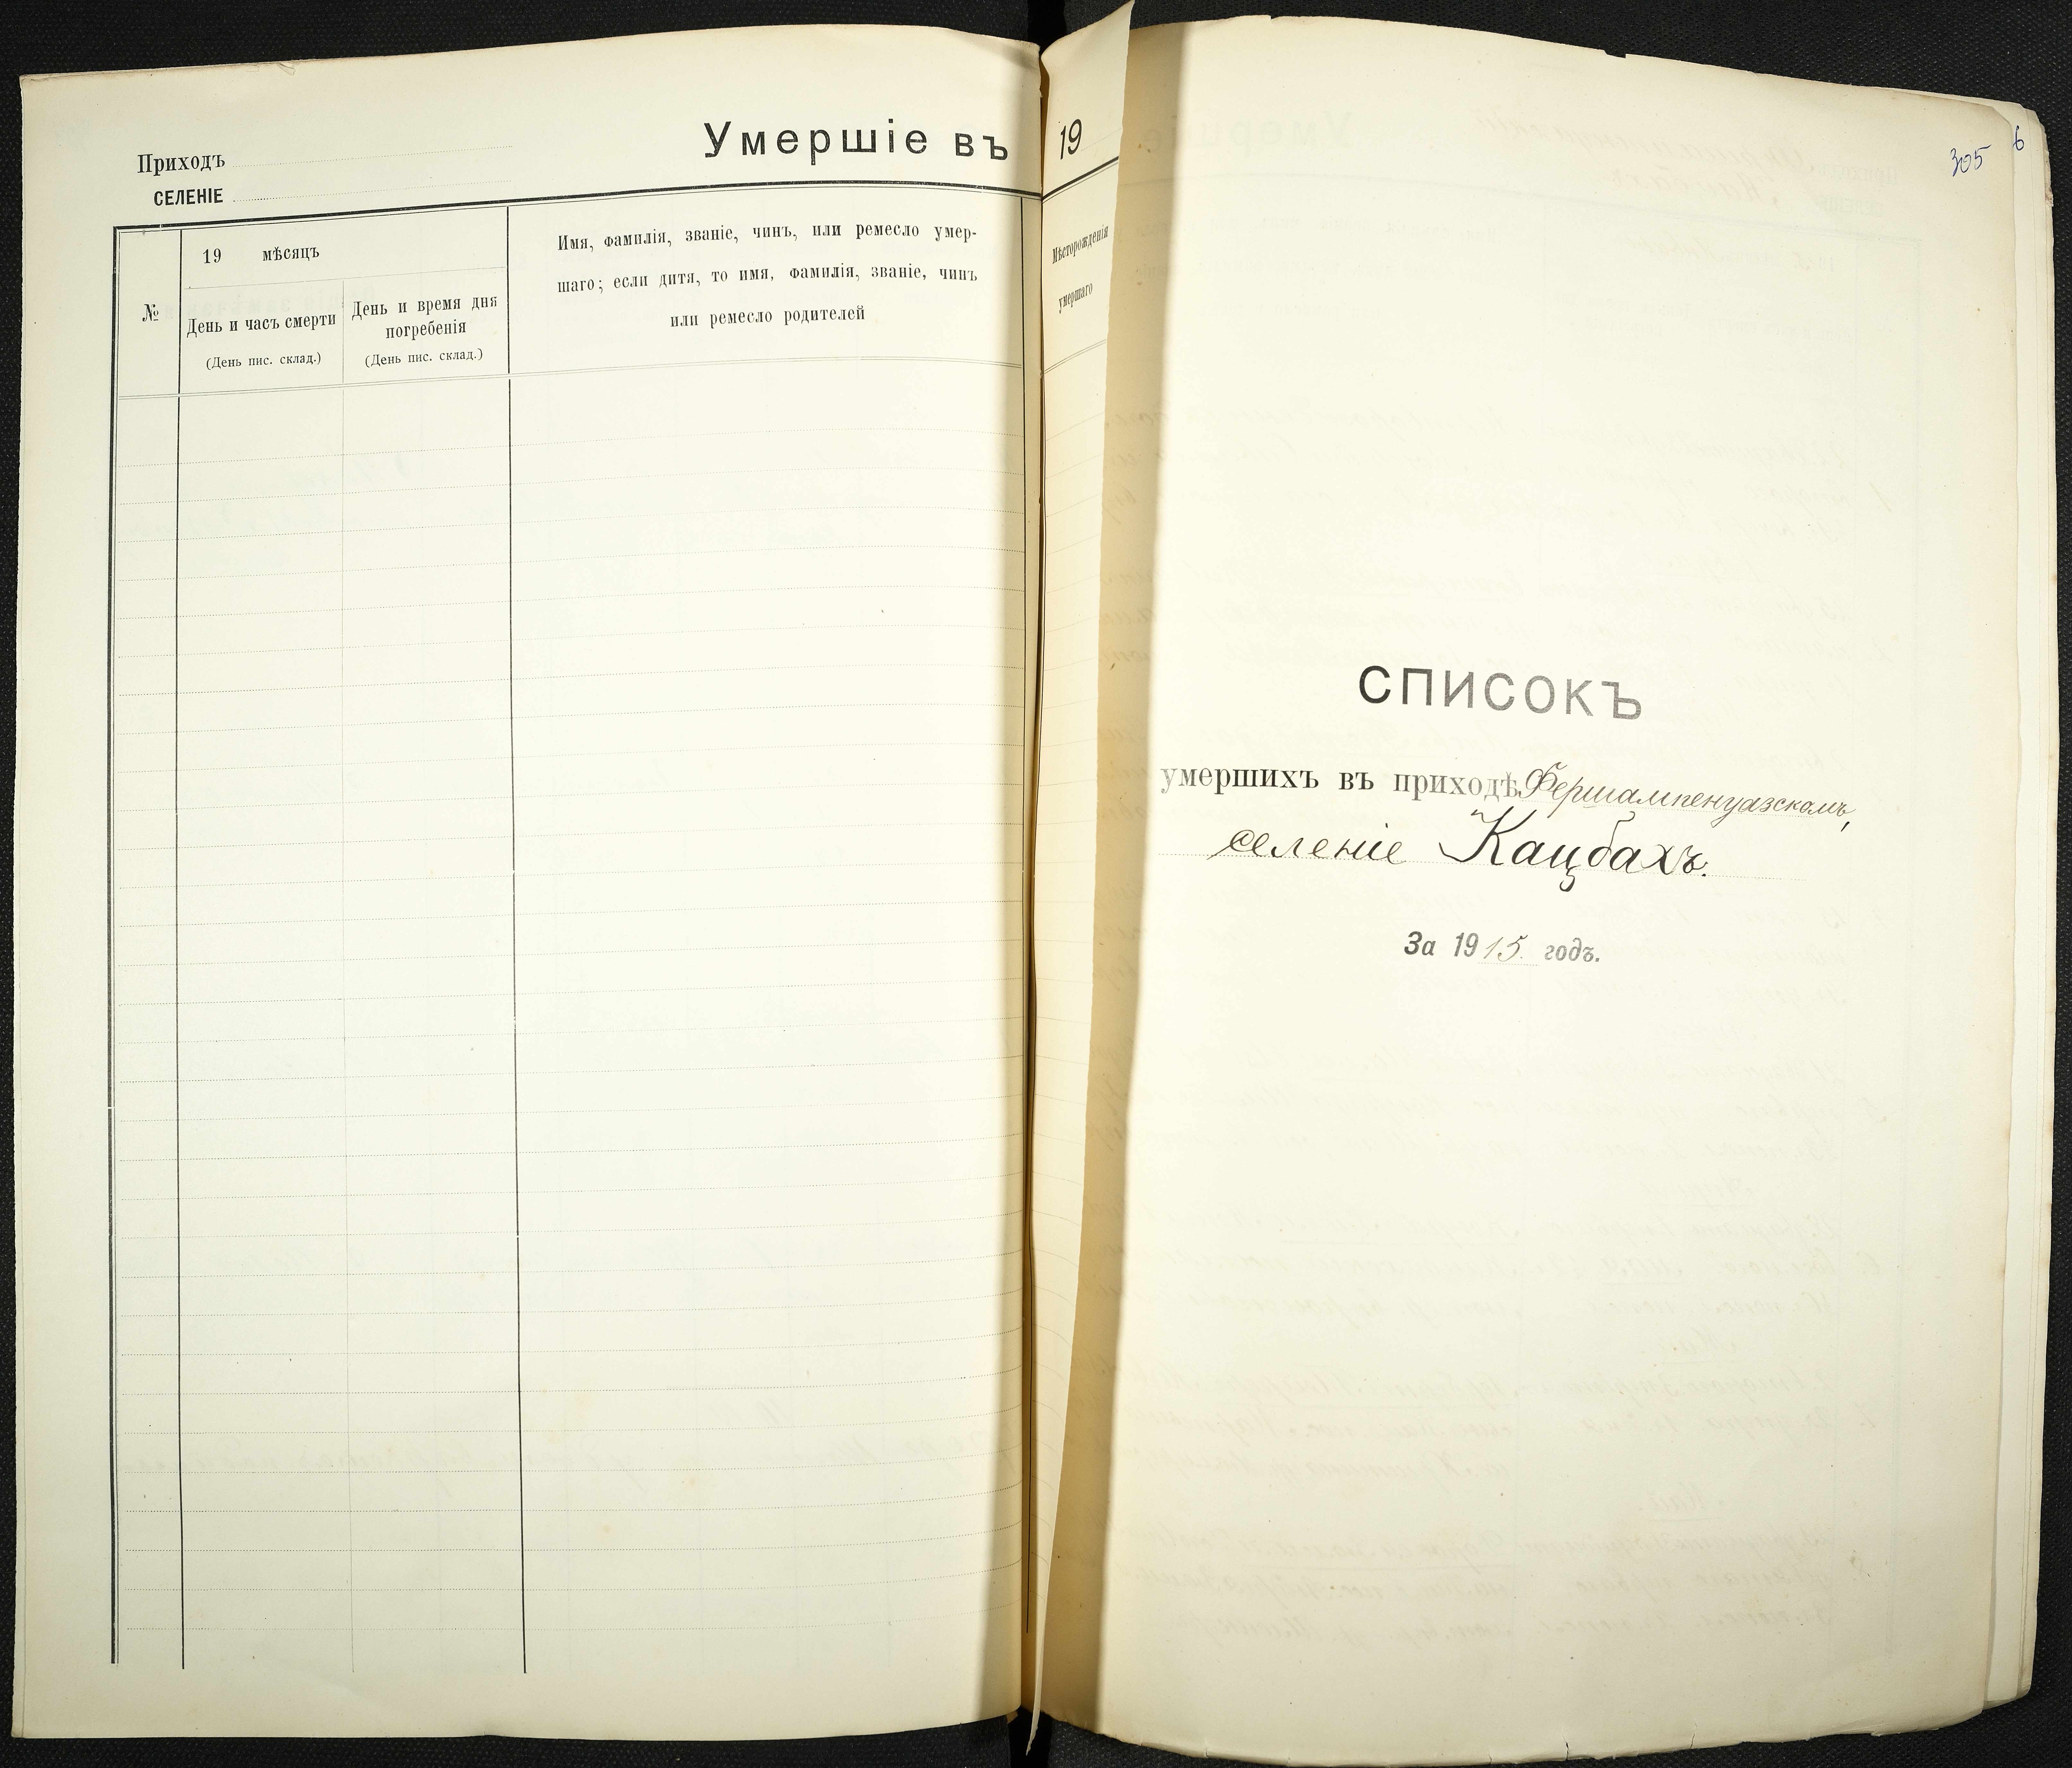 Приходъ
СЕЛЕНІЕ
Умершіе въ 19
№
19 мѣсяцъ
День и часъ смерти
(День пис. склад.)
День и время дня
погребенія
(День пис. склад.)
Имя, фамилія, званіе, чинъ, или ремесло умер-
шаго; если дитя, то имя, фамилія, званіе, чинъ
или ремесло родителей
Мѣсторожденія
умершаго
305
6
СПИСОКЪ
умершихъ въ приходѣ Фершампенуазскомъ,
селеніе Кацбахъ.
За 1915. годъ.